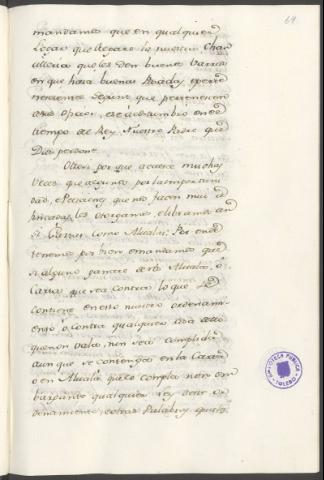 69
mandamos que en qualquier
Logar que llegare la nuestra Chan
cilleria que les den buenas Varrios
en que haia buenas Posadas, e perte
necientes segunt que pertenecen
a sus oficios, e se acostumbro en el
tiempo de Rey Nuestro Padre que
Dios perdone.
Otrosi por que acaece muchas
veces que algunos por la importuni
dad, e Peticiones que nos facen mui
les otorgamos e libramos an
si Cartas como Alvalas: Por ende
tenemos por bien e mandamos que
si alguno ganare de Nos Alvala, o
Carta que sea contra lo que se
contiene en esto nuestro ordenami
ento, o contra qualquier cosa dello
que non vala nin sea complida
aun que se contenga en la Carta
o en Alvala que lo complan non em
bargante qualquier Ley deste or
denamiento, e otras Palabras quales
BIBLIOTECA PUBLICA
TOLEDO